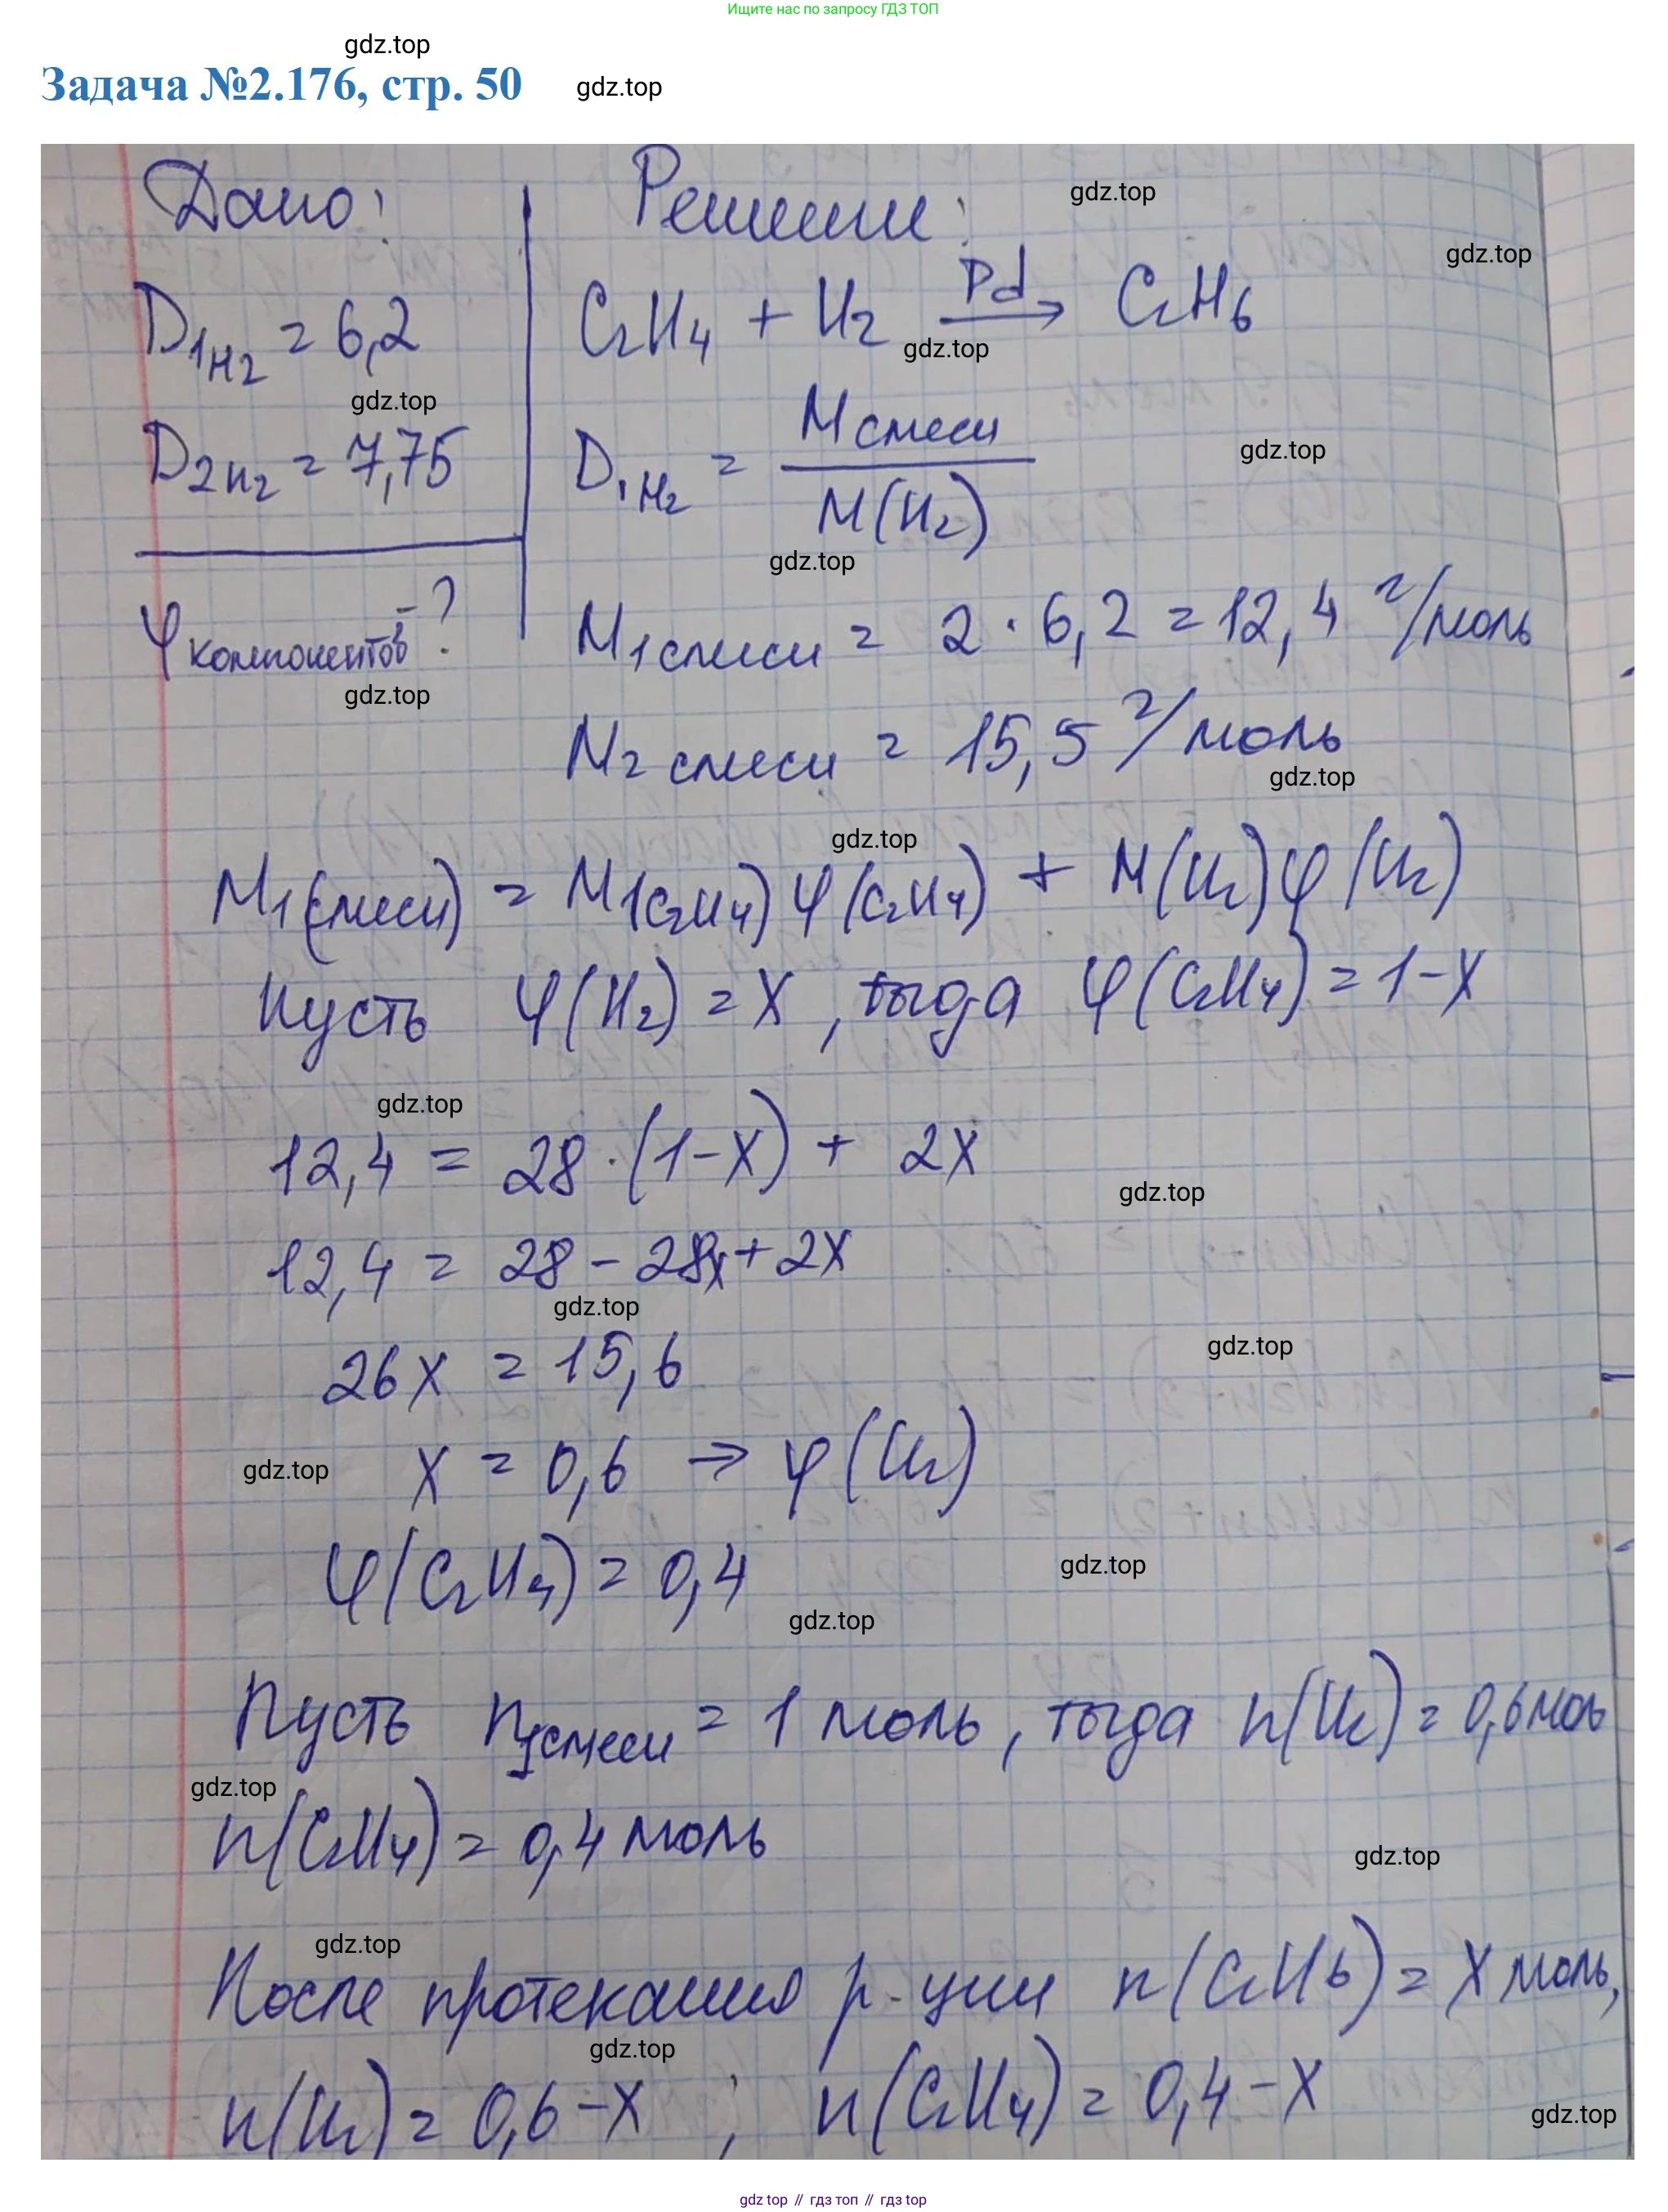 Ищите нас по запросу ГДЗ ТОП
gdz.top
Задача №2.176, стр. 50 gdz.top
Дано: Решение: gdz.top
gdz.top
D₁H₂ = 6,2 C₂H₄ + H₂ Pd→ C₂H₆
gdz.top
gdz.top
D₂H₂ = 7,75 D₁H₂ = Mсмеси / M(H₂)
gdz.top
gdz.top
φ компонентов - ? M₁ смеси = 2 · 6,2 = 12,4 г/моль
gdz.top
M₂ смеси = 15,5 г/моль
gdz.top
gdz.top
M₁(смеси) = M₁(C₂H₄) φ(C₂H₄) + M(H₂) φ(H₂)
Пусть φ(H₂) = X, тогда φ(C₂H₄) = 1-X
gdz.top
12,4 = 28 · (1-X) + 2X
gdz.top
12,4 = 28 - 28x + 2X
gdz.top
gdz.top
26X = 15,6
gdz.top X = 0,6 → φ(H₂)
φ(C₂H₄) = 0,4
gdz.top
gdz.top
Пусть n₁смеси = 1 моль, тогда n(H₂) = 0,6 моль
gdz.top
n(C₂H₄) = 0,4 моль
gdz.top
gdz.top
После протекания р-ции n(C₂H₆) = X моль,
gdz.top
n(H₂) = 0,6 - X ; n(C₂H₄) = 0,4 - X
gdz.top
gdz top // гдз топ // гдз top